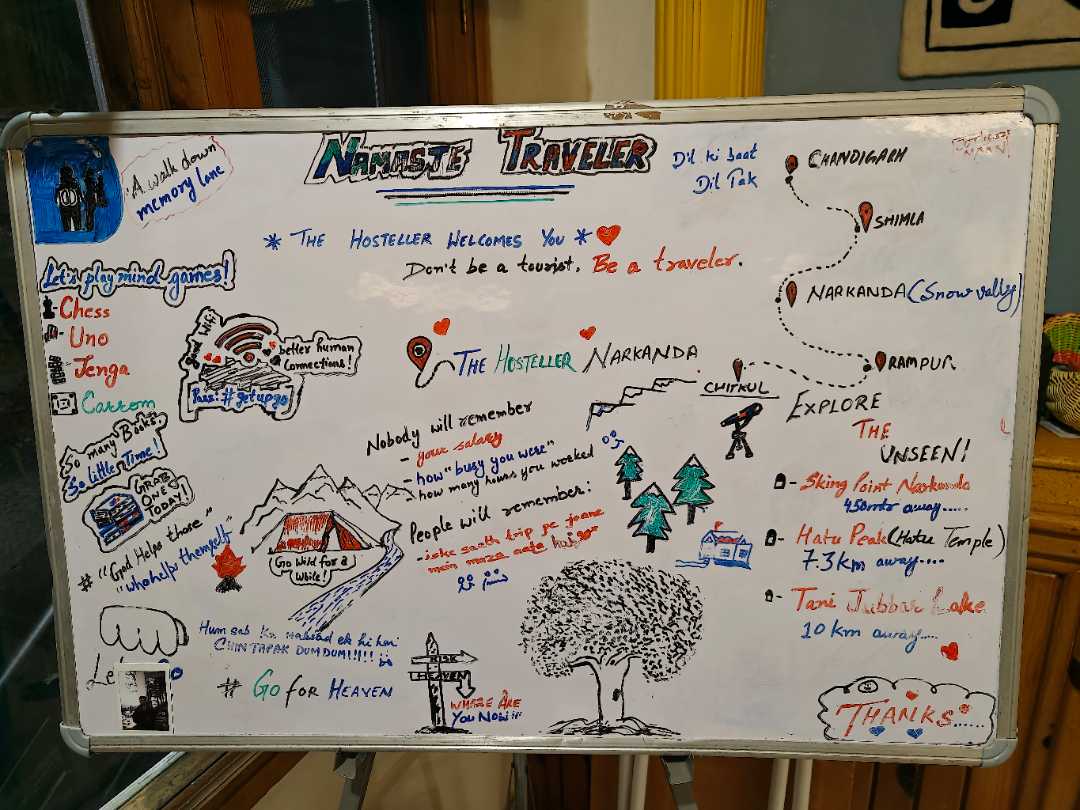 NAMASTE TRAVELER
A walk down
memory lane
Dil ki baat
Dil Tak
* THE HOSTELLER WELCOMES YOU *
Don't be a tourist. Be a traveler.
Let's play mind games!
Chess
Uno
Jenga
Carrom
Wifi
better human
Connections!
Pass: #getupgo
THE HOSTELLER NARKANDA
CHANDIGARH
SHIMLA
NARKANDA (Snow valley)
RAMPUR
CHITKUL
So many Books,
So little Time!
GRAB
ONE
TODAY!
# "God Helps those"
"who help themself"
Nobody will remember
- your salary
- how "busy you were"
- how many hours you worked
People will remember:
- iske saath trip pe jaane
mein maza aata hai
Go Wild for a
While!
EXPLORE
THE
UNSEEN!
- Sking Point Narkanda
450mtr away.....
- Hatu Peak (Hatu Temple)
7.3 km away....
- Tani Jubbar Lake
10 km away....
Hum sab ka maksad ek hi hai
CHIN TAPAK DUM DUM!!!!
# GO FOR HEAVEN
RISK
HEAVEN
WHERE ARE
YOU NOW!!!
THANKS......